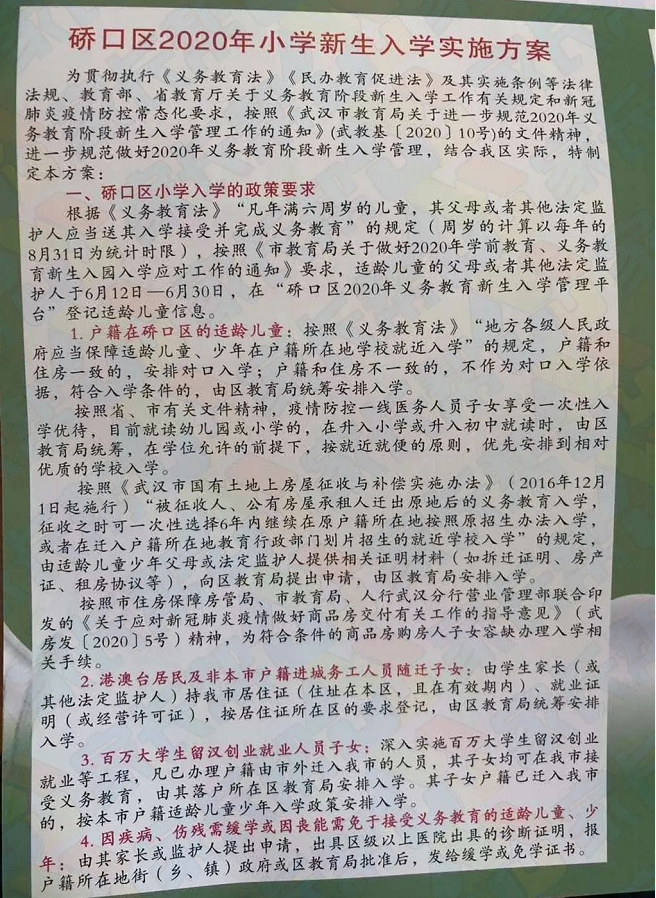 硚口区2020年小学新生入学实施方案
为贯彻执行《义务教育法》《民办教育促进法》及其实施条例等法律
法规、教育部、省教育厅关于义务教育阶段新生入学工作有关规定和新冠
肺炎疫情防控常态化要求，按照《武汉市教育局关于进一步规范2020年义
务教育阶段新生入学管理工作的通知》(武教基〔2020〕10号)的文件精神，
进一步规范做好2020年义务教育阶段新生入学管理，结合我区实际，特制
定本方案：
一、硚口区小学入学的政策要求
根据《义务教育法》“凡年满六周岁的儿童，其父母或者其他法定监
护人应当送其入学接受并完成义务教育”的规定（周岁的计算以每年的
8月31日为统计时限），按照《市教育局关于做好2020年学前教育、义务教
育新生入园入学应对工作的通知》要求，适龄儿童的父母或者其他法定监
护人于6月12日—6月30日，在“硚口区2020年义务教育新生入学管理平
台”登记适龄儿童信息。
1.户籍在硚口区的适龄儿童：按照《义务教育法》“地方各级人民政
府应当保障适龄儿童、少年在户籍所在地学校就近入学”的规定，户籍和
住房一致的，安排对口入学；户籍和住房不一致的，不作为对口入学依
据，符合入学条件的，由区教育局统筹安排入学。
按照省、市有关文件精神，疫情防控一线医务人员子女享受一次性入
学优待，目前就读幼儿园或小学的，在升入小学或升入初中就读时，由区
教育局统筹，在学位允许的前提下，按就近就便的原则，优先安排到相对
优质的学校入学。
按照《武汉市国有土地上房屋征收与补偿实施办法》（2016年12月
1日起施行）“被征收人、公有房屋承租人迁出原地后的义务教育入学，
征收之时可一次性选择6年内继续在原户籍所在地按照原招生办法入学，
或者在迁入户籍所在地教育行政部门划片招生的就近学校入学”的规定，
由适龄儿童少年父母或法定监护人提供相关证明材料（如拆迁证明、房产
证、租房协议等），向区教育局提出申请，由区教育局安排入学。
按照市住房保障房管局、市教育局、人行武汉分行营业管理部联合印
发的《关于应对新冠肺炎疫情做好商品房交付有关工作的指导意见》（武
房发〔2020〕5号）精神，为符合条件的商品房购房人子女容缺办理入学相
关手续。
2.港澳台居民及非本市户籍进城务工人员随迁子女：由学生家长（或
其他法定监护人）持我市居住证（住址在本区，且在有效期内）、就业证
明（或经营许可证），按居住证所在区的要求登记，由区教育局统筹安排
入学。
3.百万大学生留汉创业就业人员子女：深入实施百万大学生留汉创业
就业等工程，凡已办理户籍由市外迁入我市的人员，其子女均可在我市接
受义务教育，由其落户所在区教育局安排入学。其子女户籍已迁入我市
的，按本市户籍适龄儿童少年入学政策安排入学。
4.因疾病、伤残需缓学或因丧能需免于接受义务教育的适龄儿童、少
年：由其家长或监护人提出申请，出具区级以上医院出具的诊断证明，报
户籍所在地街（乡、镇）政府或区教育局批准后，发给缓学或免学证书。